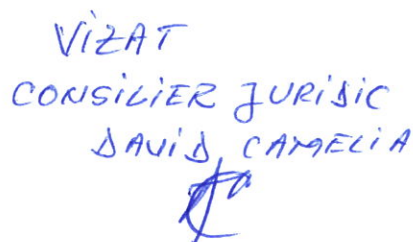 VIZAT
CONSILIER JURIDIC
DAVID CAMELIA